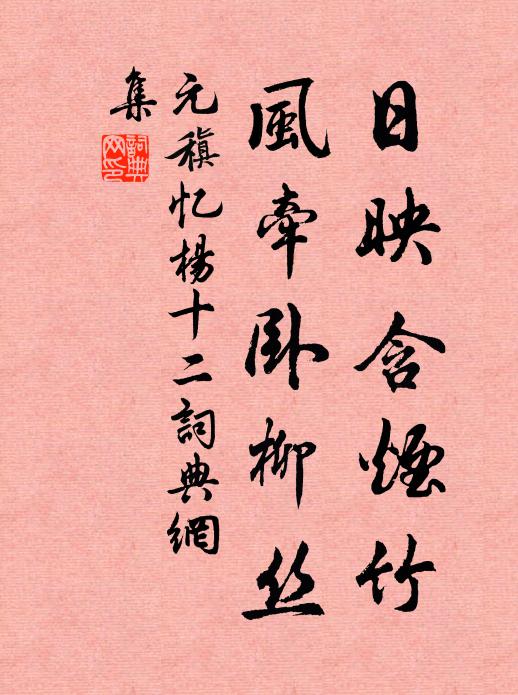 日映含煙竹
風牽卧柳丝
元稹忆楊十二詞典網
集
詞典
网印